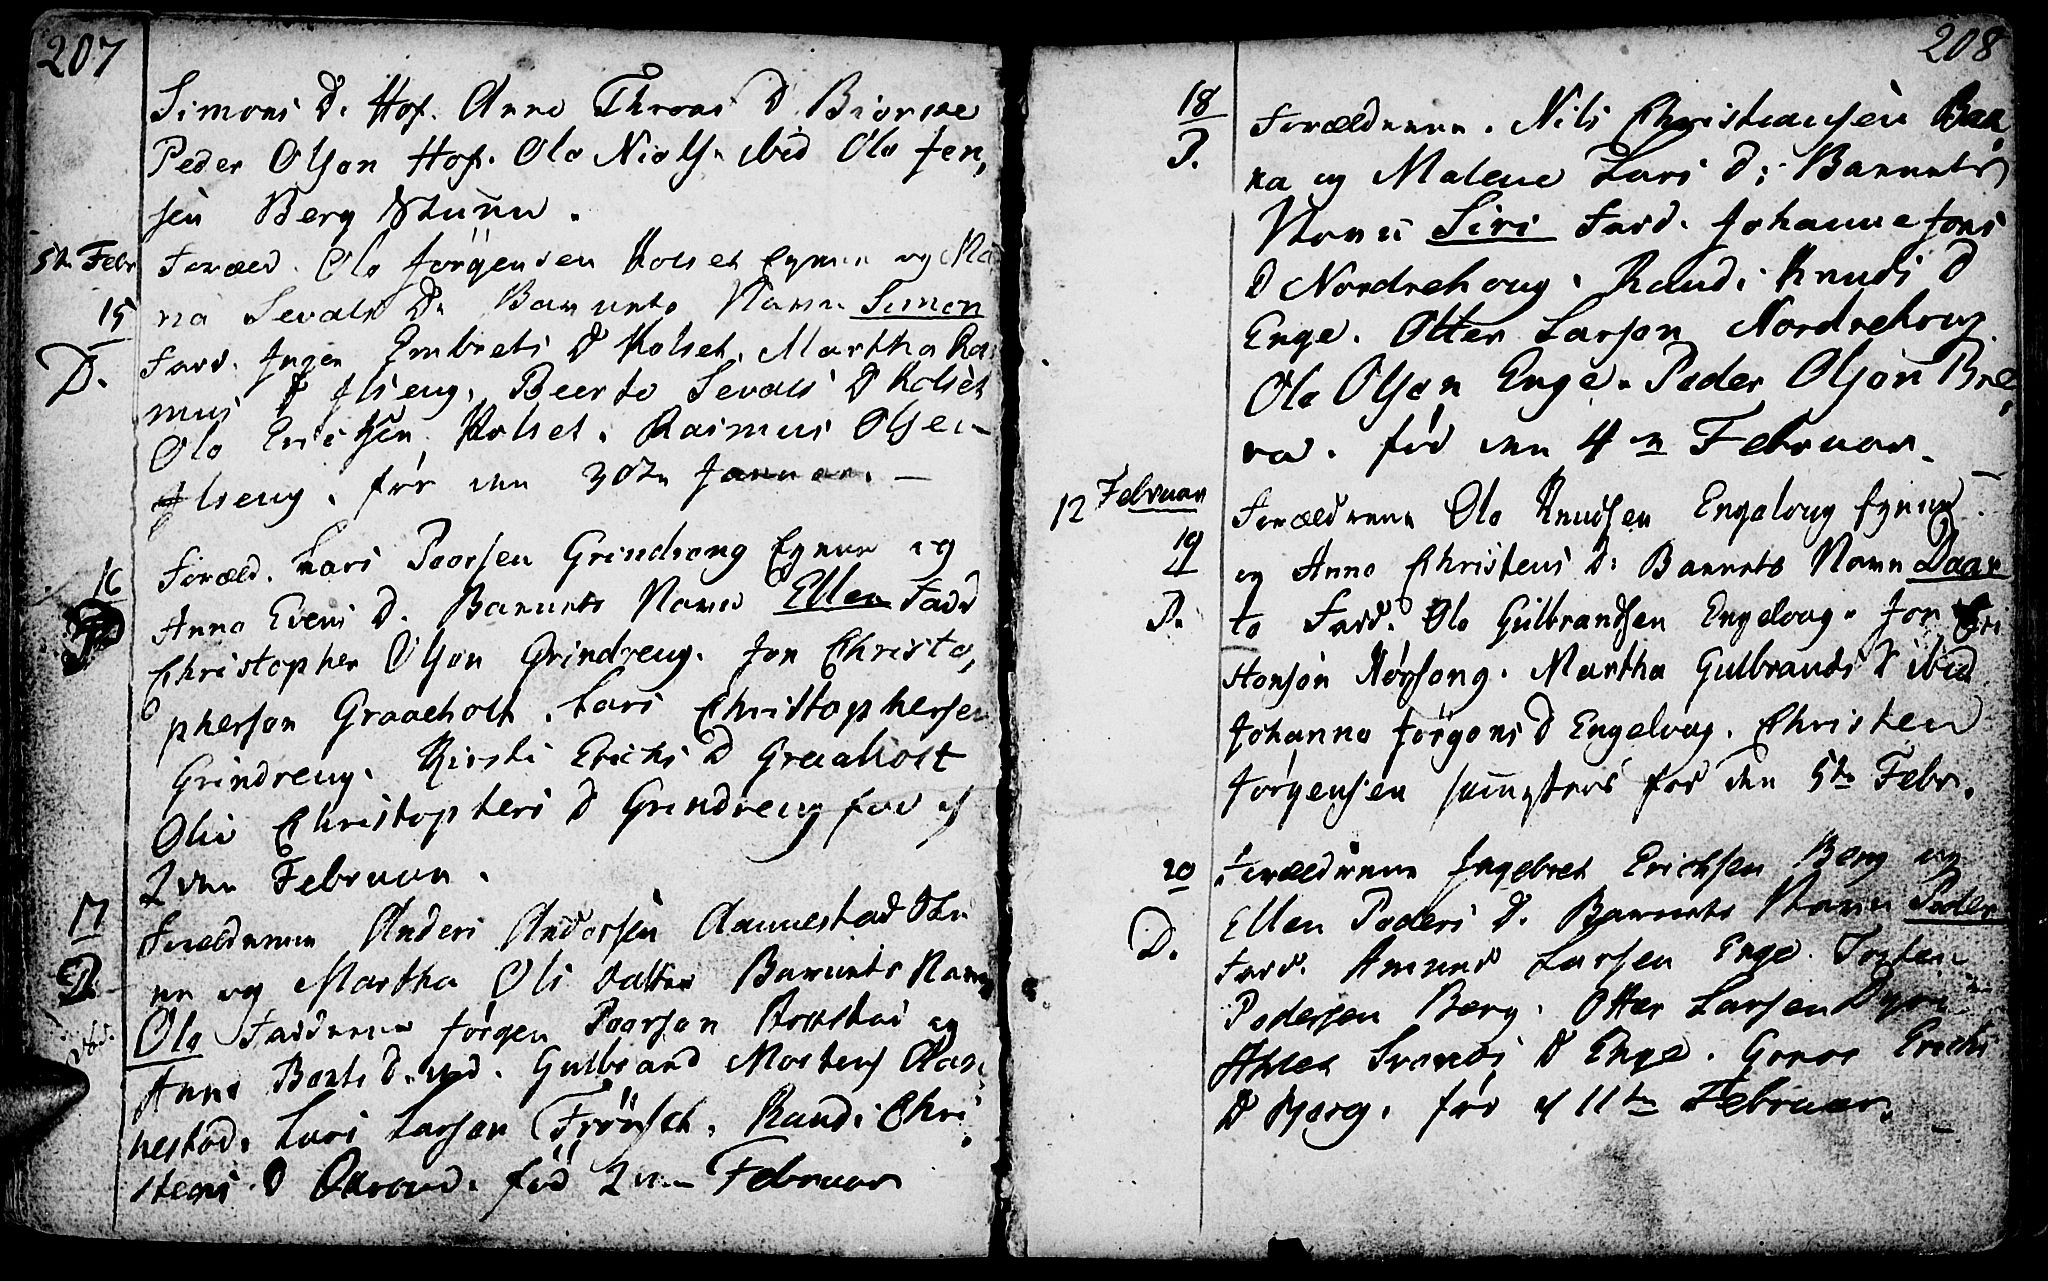 207
Simons D. Hof. Anne Throns D Biorke
Peder Olsøn Hof. Ole Niels. ibid Ole Jen,
sen Berg Stuen.
5te Febr Foræld. Ole Jörgensen Kolset Egnen og Ma
15 ria Sevals D. Barnets Navn Simon
D. Fadd. Inger Embrets D Kolset. Martha Ras
mus D Ilseng. Beerte Sevals D Kolset
Ole Erichsen Kolset. Rasmus Olsen
Ilseng. før den 30te Januar. —
16 Foræld. Lars Poorsen Grindreng Egnen og
Anne Evens D. Barnets Navn Ellen Fadd
Christopher Olsøn Grindreng. Jon Christo,
phersøn Graaeholt. Lars Christophersen
Grindreng. Kirsti Erichs D Graaholt
Olie Christophers D Grindreng fød d
2den Februar.
17 Forældrene Anders Andersen Aannestad
D. og Martha Ols datter Barnets Navn
Ole Fadderne Jörgen Poorsøn
Anne D. ibid. Gulbrand Mortens Aan,
nestad. Lars Larsen Frönset. Randi Chri,
stens D. fød 2den Februar
208
18 Forældrene. Nils Christiansen Bræ,
D. ra og Malene Lars D: Barnets
Navn Siri Fadd. Johanne Jons
D Nordrehoug. Randi Knuds D
Enge. Otter Larsøn Nordrehoug.
Ole Olsøn Enge. Peder Olsøn Bræ,
ra. fød den 4de Februar. —
12 Februar
19 Forældrene Ole Knudsen Engeloug Egnen
og Anne Christens D: Barnets Navn Daar
D. te Fadd. Ole Gulbrandsen Engeloug. Jon
Hansøn Kørsong. Martha Gulbrands D ibid
Johanne Jørgens D Engeloug. Christen
Jørgensen sammesteds fød den 5te Febr.
20 Forældrene Ingebret Erichsen Berg og
D. Ellen Peders D. Barnets Navn Peder
Fadd. Amund Larsen Enge. Torsten
Pedersen Berg. Otter Larsen
Svends D Enge. Erichs
D Bierg. fød d 11te Februar. —